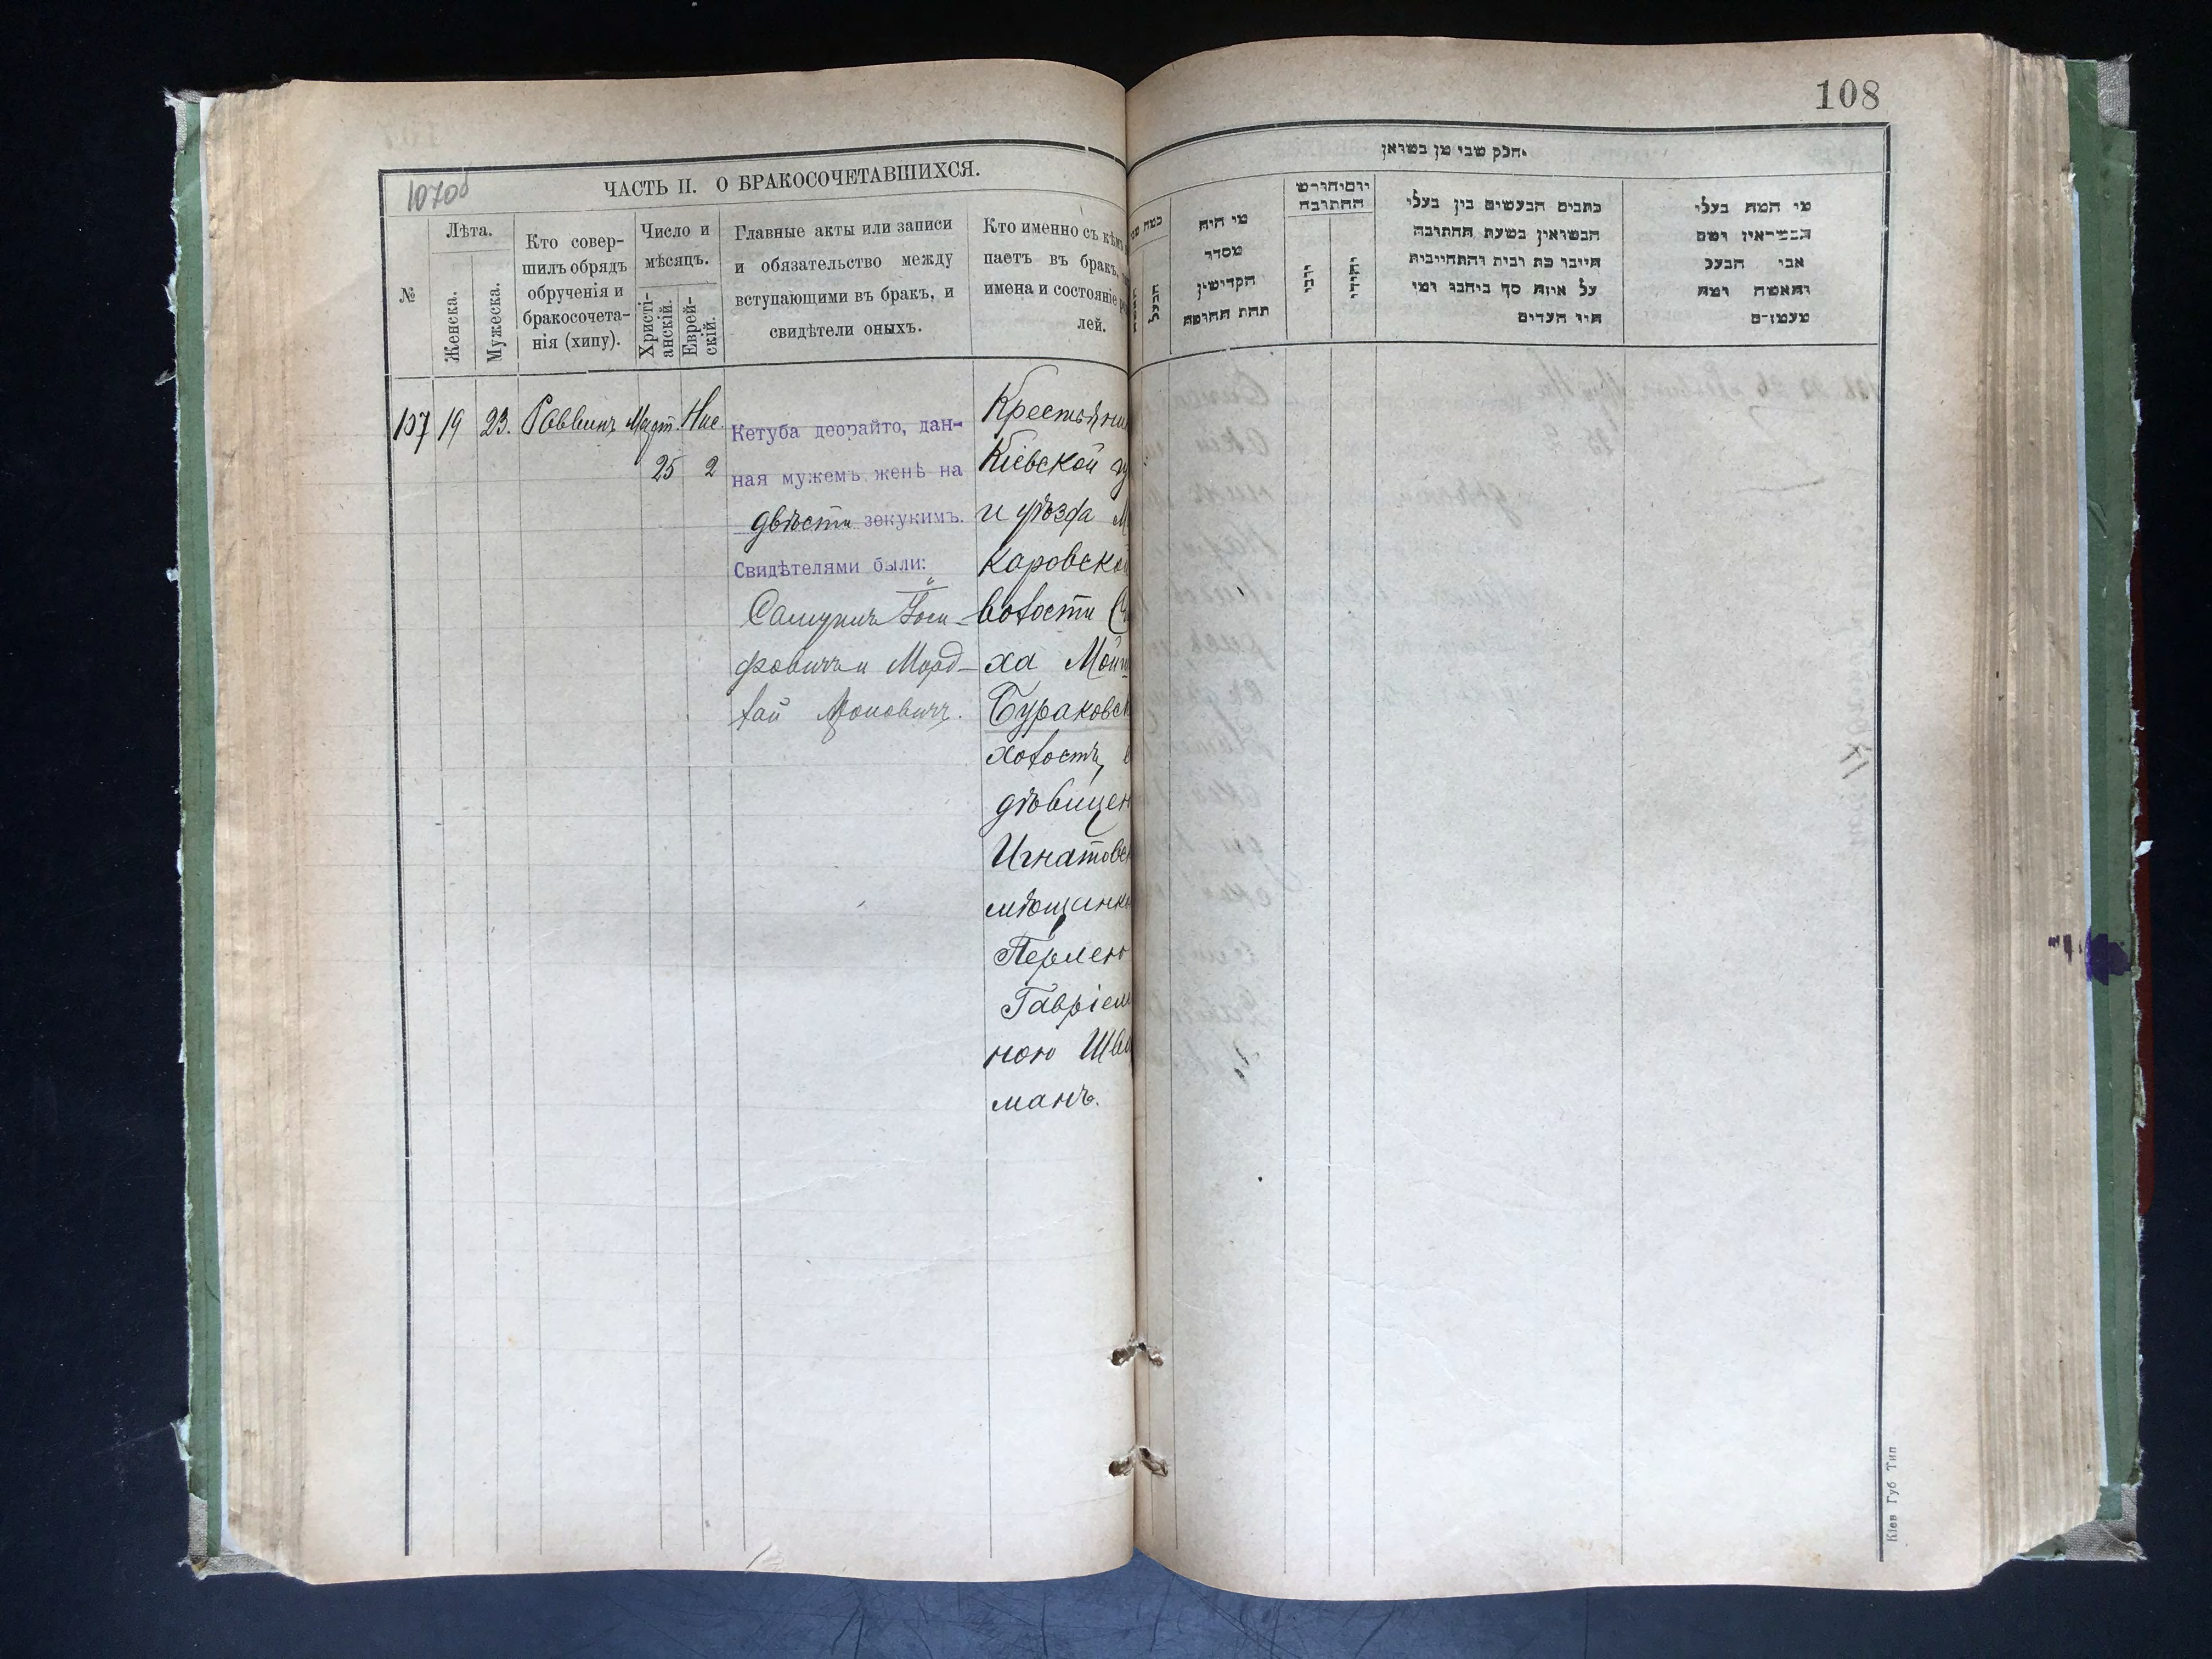 107об
ЧАСТЬ II. О БРАКОСОЧЕТАВШИХСЯ.
№
Лѣта.
Женска.
Мужеска.
Кто совер-
шилъ обрядъ
обрученія и
бракосочета-
нія (хипу).
Число и
мѣсяцъ.
Христі-
анскій.
Еврей-
скій.
Главные акты или записи
и обязательство между
вступающими въ бракъ, и
свидѣтели оныхъ.
Кто именно съ кѣмъ
паетъ въ бракъ,
имена и состояніе
лей.
107
19
23.
Раввинъ
Март.
25
Нис.
2
Кетуба деорайто, дан-
ная мужемъ женѣ на
двѣсти зекукимъ.
Свидѣтелями были:
и Морд-
Крестьянин
Кіевской гу
и уѣзда М
каровской
волости С
ха Мойш
Бураковск
холостъ, с
дѣвицею
Игнатовск
мѣщанко
Перлею
Гавріел
ною Шва
манъ.
108
חלק שני מן נשואין
כמה שני
הבעל
מי היה
מסדר
הקדושין
תחת החופה
יום וחודש
החתונה
כתבים הנעשים בין בעלי
הנשואין בשעת החתונה
היינו כת ובית והתחייבות
על איזה סך ביחבו ומי
היו העדים
מי המה בעלי
הנשואין ושם
אבי הבעל
והאשה ומה
מעמדם
Кіев Губ Тип